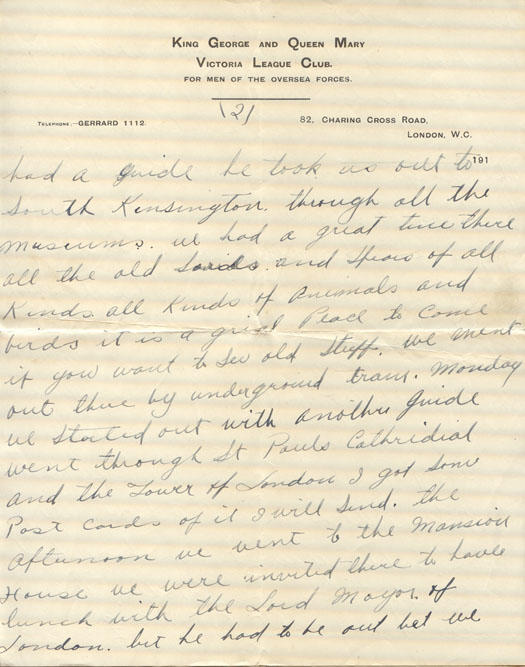 KING GEORGE AND QUEEN MARY
VICTORIA LEAGUE CLUB.
FOR MEN OF THE OVERSEA FORCES.
(2)
TELEPHONE,—GERRARD 1112.
82, CHARING CROSS ROAD,
LONDON, W.C.
191
had a guide he took us out to
South Kensington. through all the
Museums. we had a great time there
all the old Sords and Spears of all
Kinds all Kinds of Animals and
birds it is a great Place to Come
if you want to See old Stuff. we went
out there by underground tram. Monday
we Started out with another Guide
went through St Pauls Cathridial
and the Tower of London I got Some
Post Cards of it I will Send. the
Afternoon we went to the Mansion
House we were invited there to have
lunch with the Lord Mayor of
London. but he had to be out but we